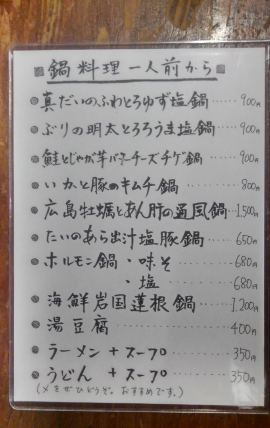 鍋料理 一人前から
真だいのふわとろゆず塩鍋 ····· 900円
ぶりの明太とろろうま塩鍋 ····· 900円
鮭とじゃが芋バターチーズチゲ鍋 ···· 900円
いかと豚のキムチ鍋 ········ 800円
広島牡蠣とあん肝の通風鍋 ·· 1,500円
たいのあら出汁塩豚鍋 ······ 650円
ホルモン鍋・味そ ········ 680円
・塩 ········ 680円
海鮮岩国蓮根鍋 ······· 1,200円
湯豆腐 ············ 400円
ラーメン + スープ ·········· 350円
うどん + スープ ·········· 350円
(〆をぜひどうぞ。おすすめです。)